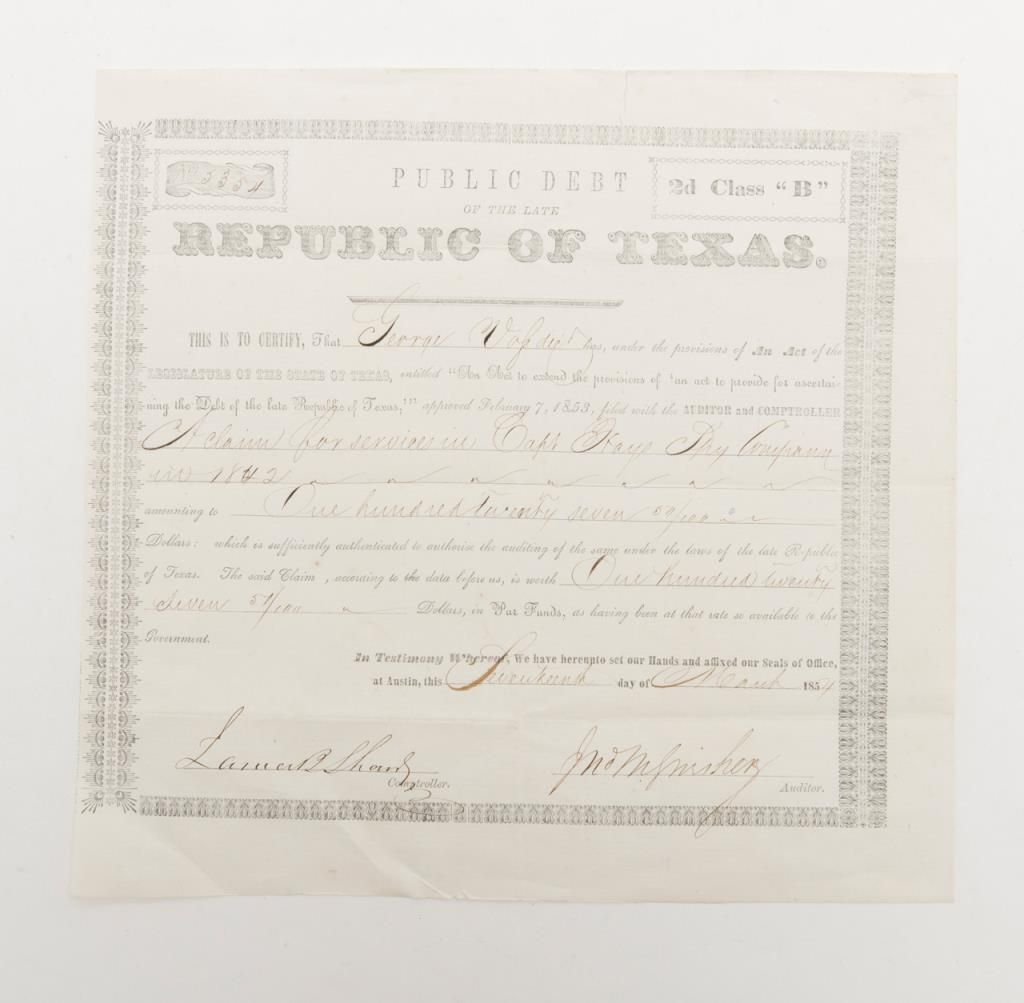 No 5354
PUBLIC DEBT
2d Class "B"
OF THE LATE
REPUBLIC OF TEXAS.
THIS IS TO CERTIFY, That George has, under the provisions of An Act of the
LEGISLATURE OF THE STATE OF TEXAS, entitled "An Act to extend the provisions of 'an act to provide for ascertai-
ning the Debt of the late Republic of Texas,'" approved February 7, 1853, filed with the AUDITOR and COMPTROLLER
A claim for services in Capt Hays Spy Company
in 1842
amounting to One hundred twenty seven 50/100
Dollars: which is sufficiently authenticated to authorise the auditing of the same under the laws of the late Republic
of Texas. The said Claim, according to the data before us, is worth One hundred twenty
seven 50/100 Dollars, in Par Funds, as having been at that rate so available to the
Government.
In Testimony Whereof, We have hereunto set our Hands and affixed our Seals of Office,
at Austin, this Seventeenth day of March 1854
James B Shaw
Comptroller.
Auditor.